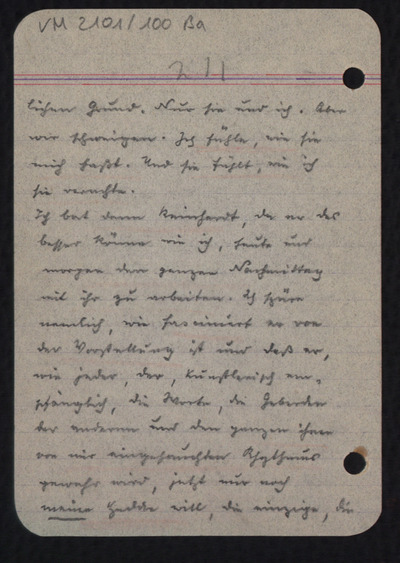 VM 2101/100 Ba
211
lichen Grund. Nur sie und ich. Aber
wir schweigen. Ich fühle, wie sie
mich haßt. Und sie fühlt, wie ich
sie verachte.
Ich bat dann Reinhardt, da er das
besser könne wie ich, heute und
morgen den ganzen Nachmittag
mit ihr zu arbeiten. Ich spüre
nämlich, wie fasciniert er von
der Vorstellung ist und daß er,
wie jeder, der, künstlerisch em-
pfänglich, die Worte, die Geberden
der anderen und den ganzen ihnen
von mir eingehauchten Rhythmus
gewahr wird, jetzt nur noch
meine Hedda will, die einzige, die